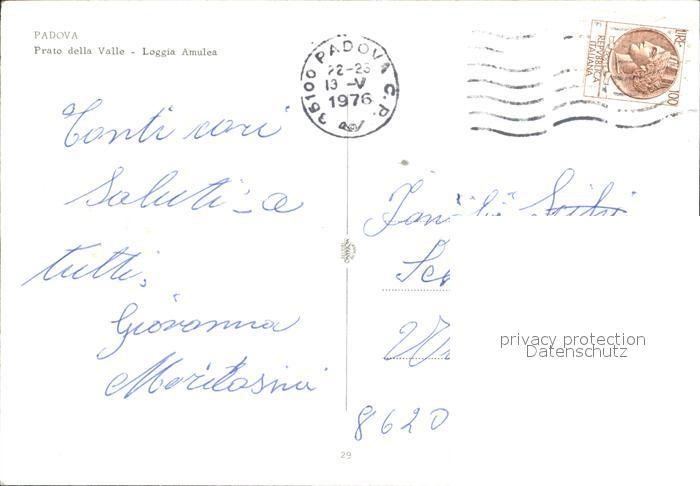 PADOVA
Prato della Valle - Loggia Amulea
35100 PADOVA C.P.
22-23
13-V
1976
LIRE 100
REPVBBLICA
ITALIANA
Tanti cari
saluti a
tutti.
Giovanna
8620
privacy protection
Datenschutz
29